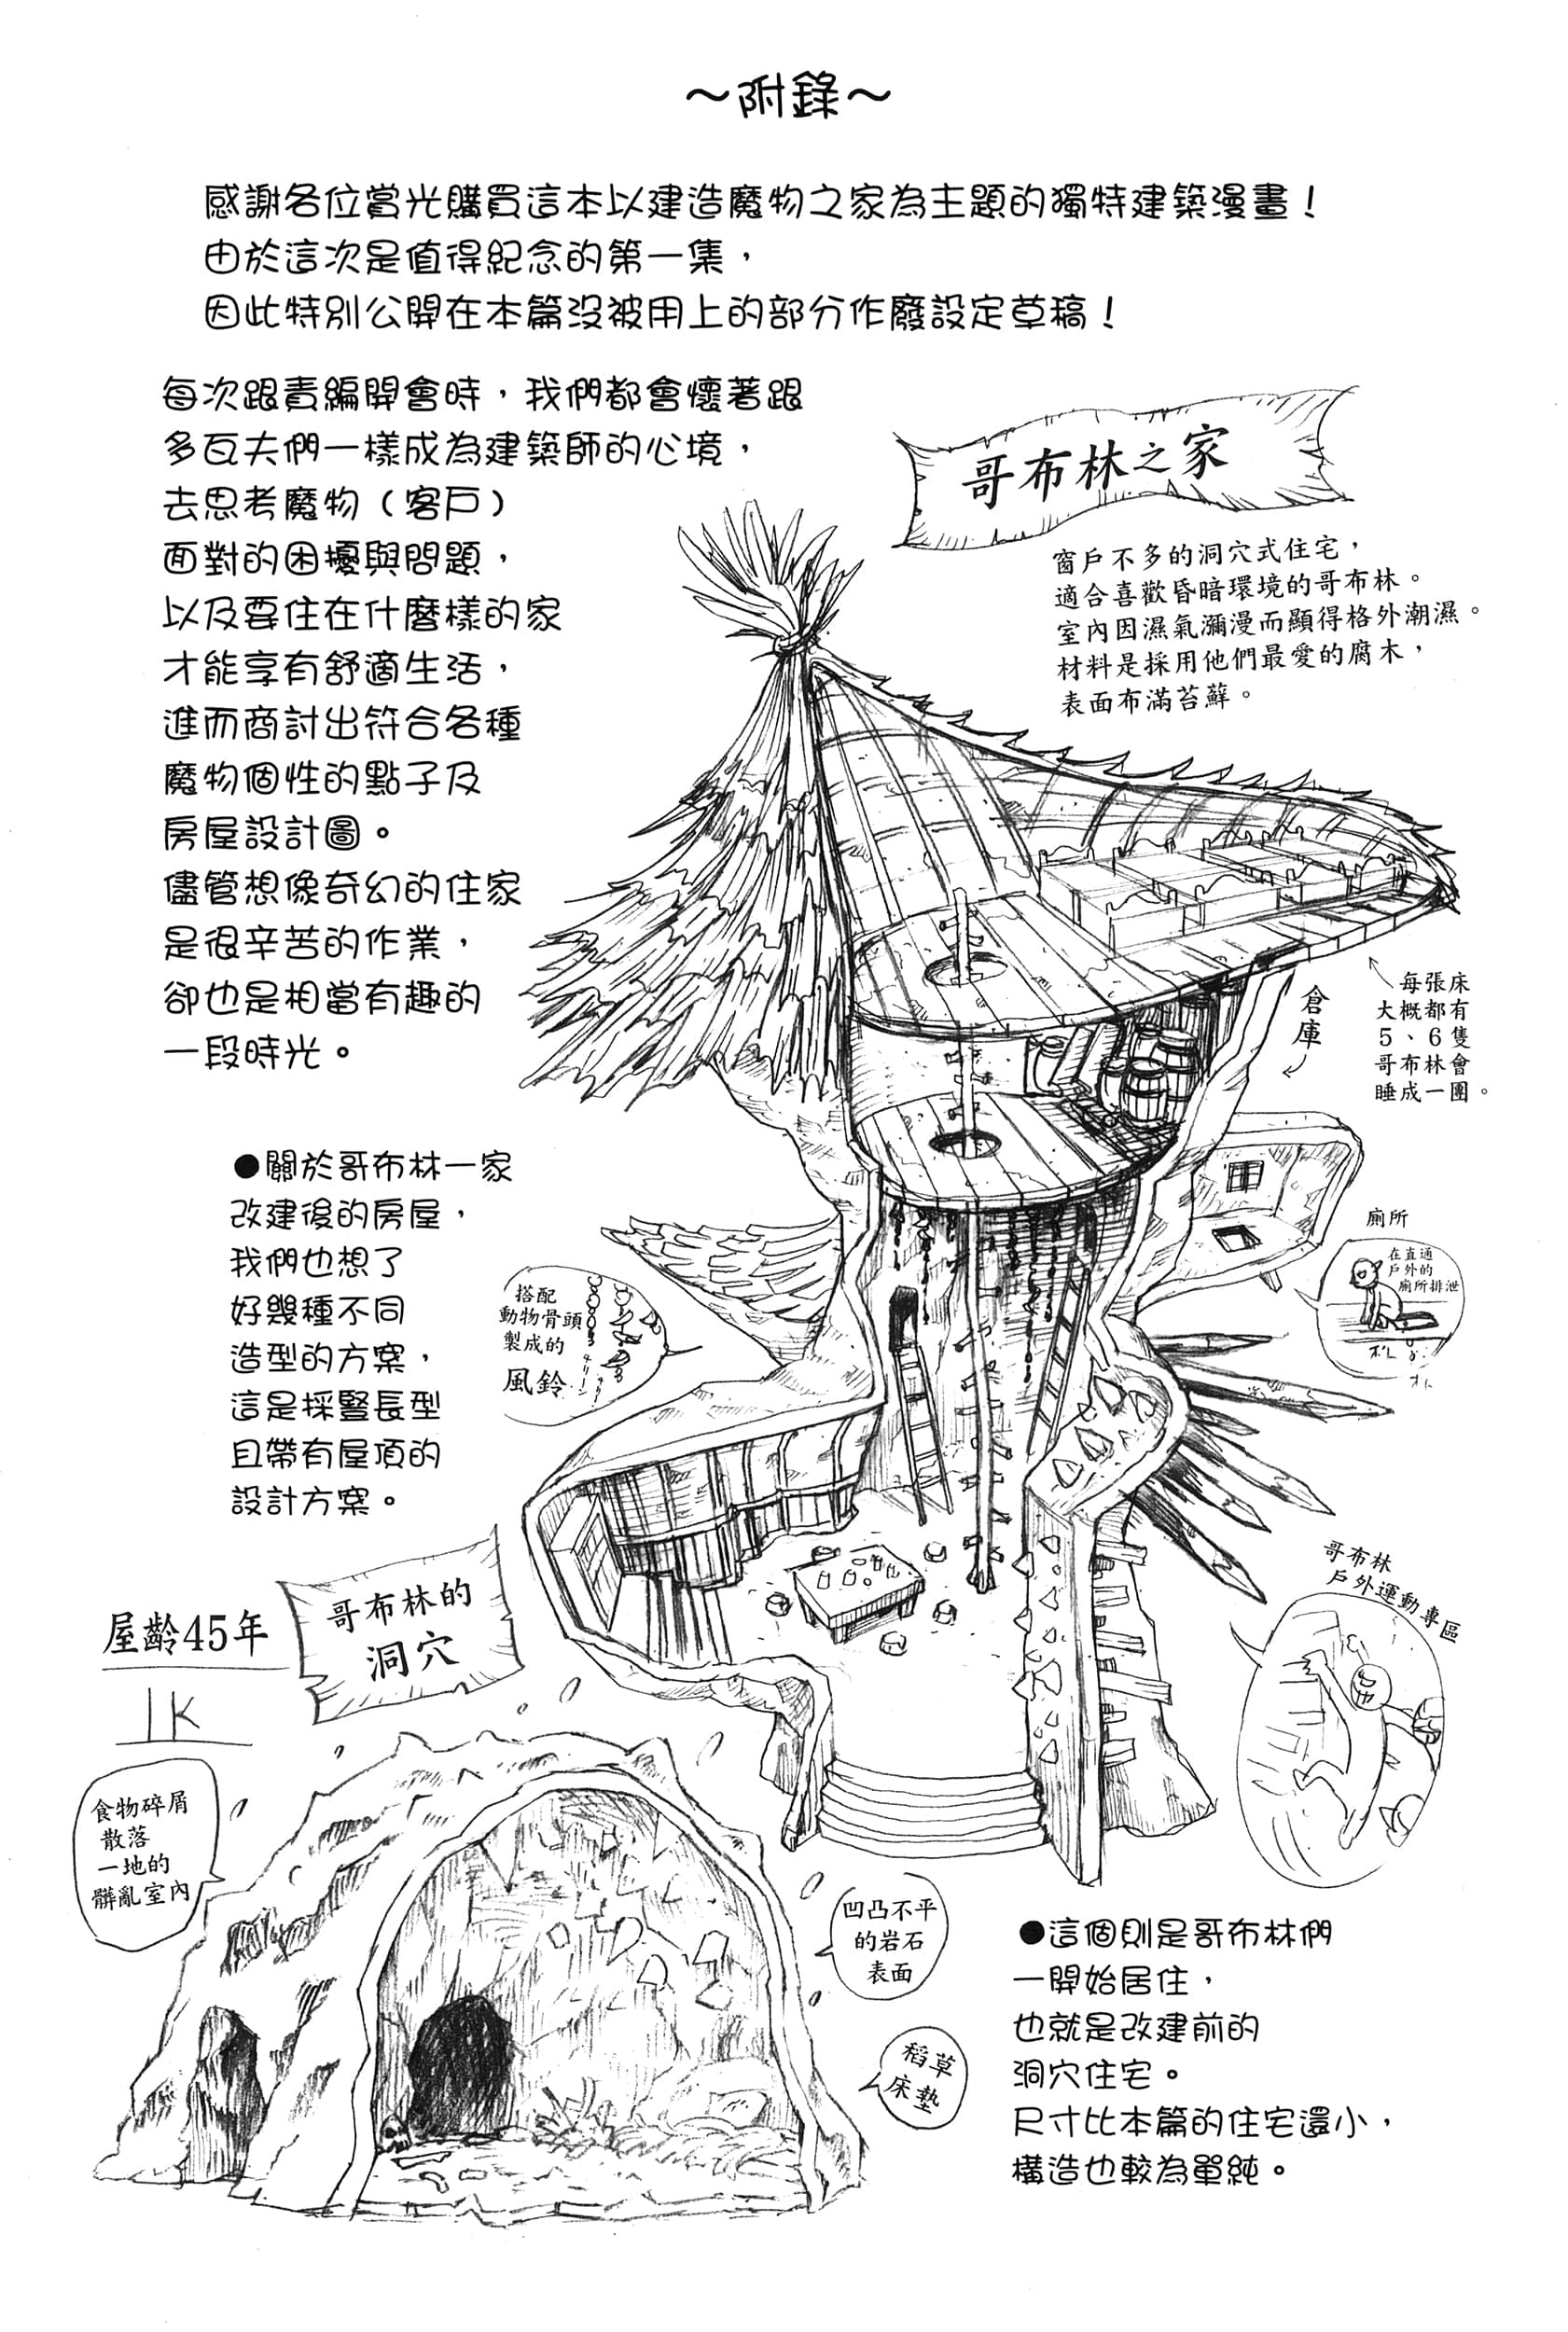 ～附錄～
感謝各位賞光購買這本以建造魔物之家為主題的獨特建築漫畫！
由於這次是值得紀念的第一集，
因此特別公開在本篇沒被用上的部分作廢設定草稿！
每次跟責編開會時，我們都會懷著跟
多瓦夫們一樣成為建築師的心境，
去思考魔物（客戶）
面對的困擾與問題，
以及要住在什麼樣的家
才能享有舒適生活，
進而商討出符合各種
魔物個性的點子及
房屋設計圖。
儘管想像奇幻的住家
是很辛苦的作業，
卻也是相當有趣的
一段時光。
哥布林之家
窗戶不多的洞穴式住宅，
適合喜歡昏暗環境的哥布林。
室內因濕氣瀰漫而顯得格外潮濕。
材料是採用他們最愛的腐木，
表面布滿苔蘚。
倉庫
每張床
大概都有
5、6隻
哥布林會
睡成一團。
●關於哥布林一家
改建後的房屋，
我們也想了
好幾種不同
造型的方案，
這是採豎長型
且帶有屋頂的
設計方案。
搭配
動物骨頭
製成的
風鈴
廁所
在直通
戶外的
廁所排泄
哥布林
戶外運動專區
哥布林的
洞穴
屋齡45年
1K
食物碎屑
散落
一地的
髒亂室內
凹凸不平
的岩石
表面
稻草
床墊
●這個則是哥布林們
一開始居住，
也就是改建前的
洞穴住宅。
尺寸比本篇的住宅還小，
構造也較為單純。